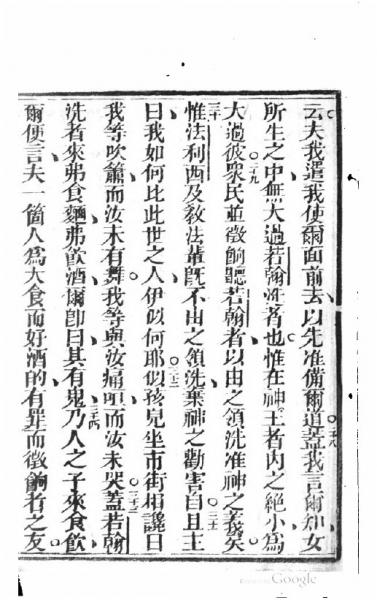 云夫我遣我使爾面前去以先准備爾道二十八蓋我言爾知女
所生之中無大過若翰洗者也惟在神王者內之絕小為
大過彼二十九眾氏並徵餉聽若翰者以由之領洗准神之義矣
三十惟法利西及教法輩既不由之領洗棄神之勸害自三十一且主
曰我如何比此世之人伊似何耶三十二似孩兒坐市街相讒曰
我等吹簫而汝未有舞我等與汝痛而汝未哭三十三蓋若翰
洗者來弗食麵弗飲酒爾即曰其有鬼三十四乃人之子來食飲
爾便言夫一箇人為大食而好酒的有罪而徵餉者之友
Google